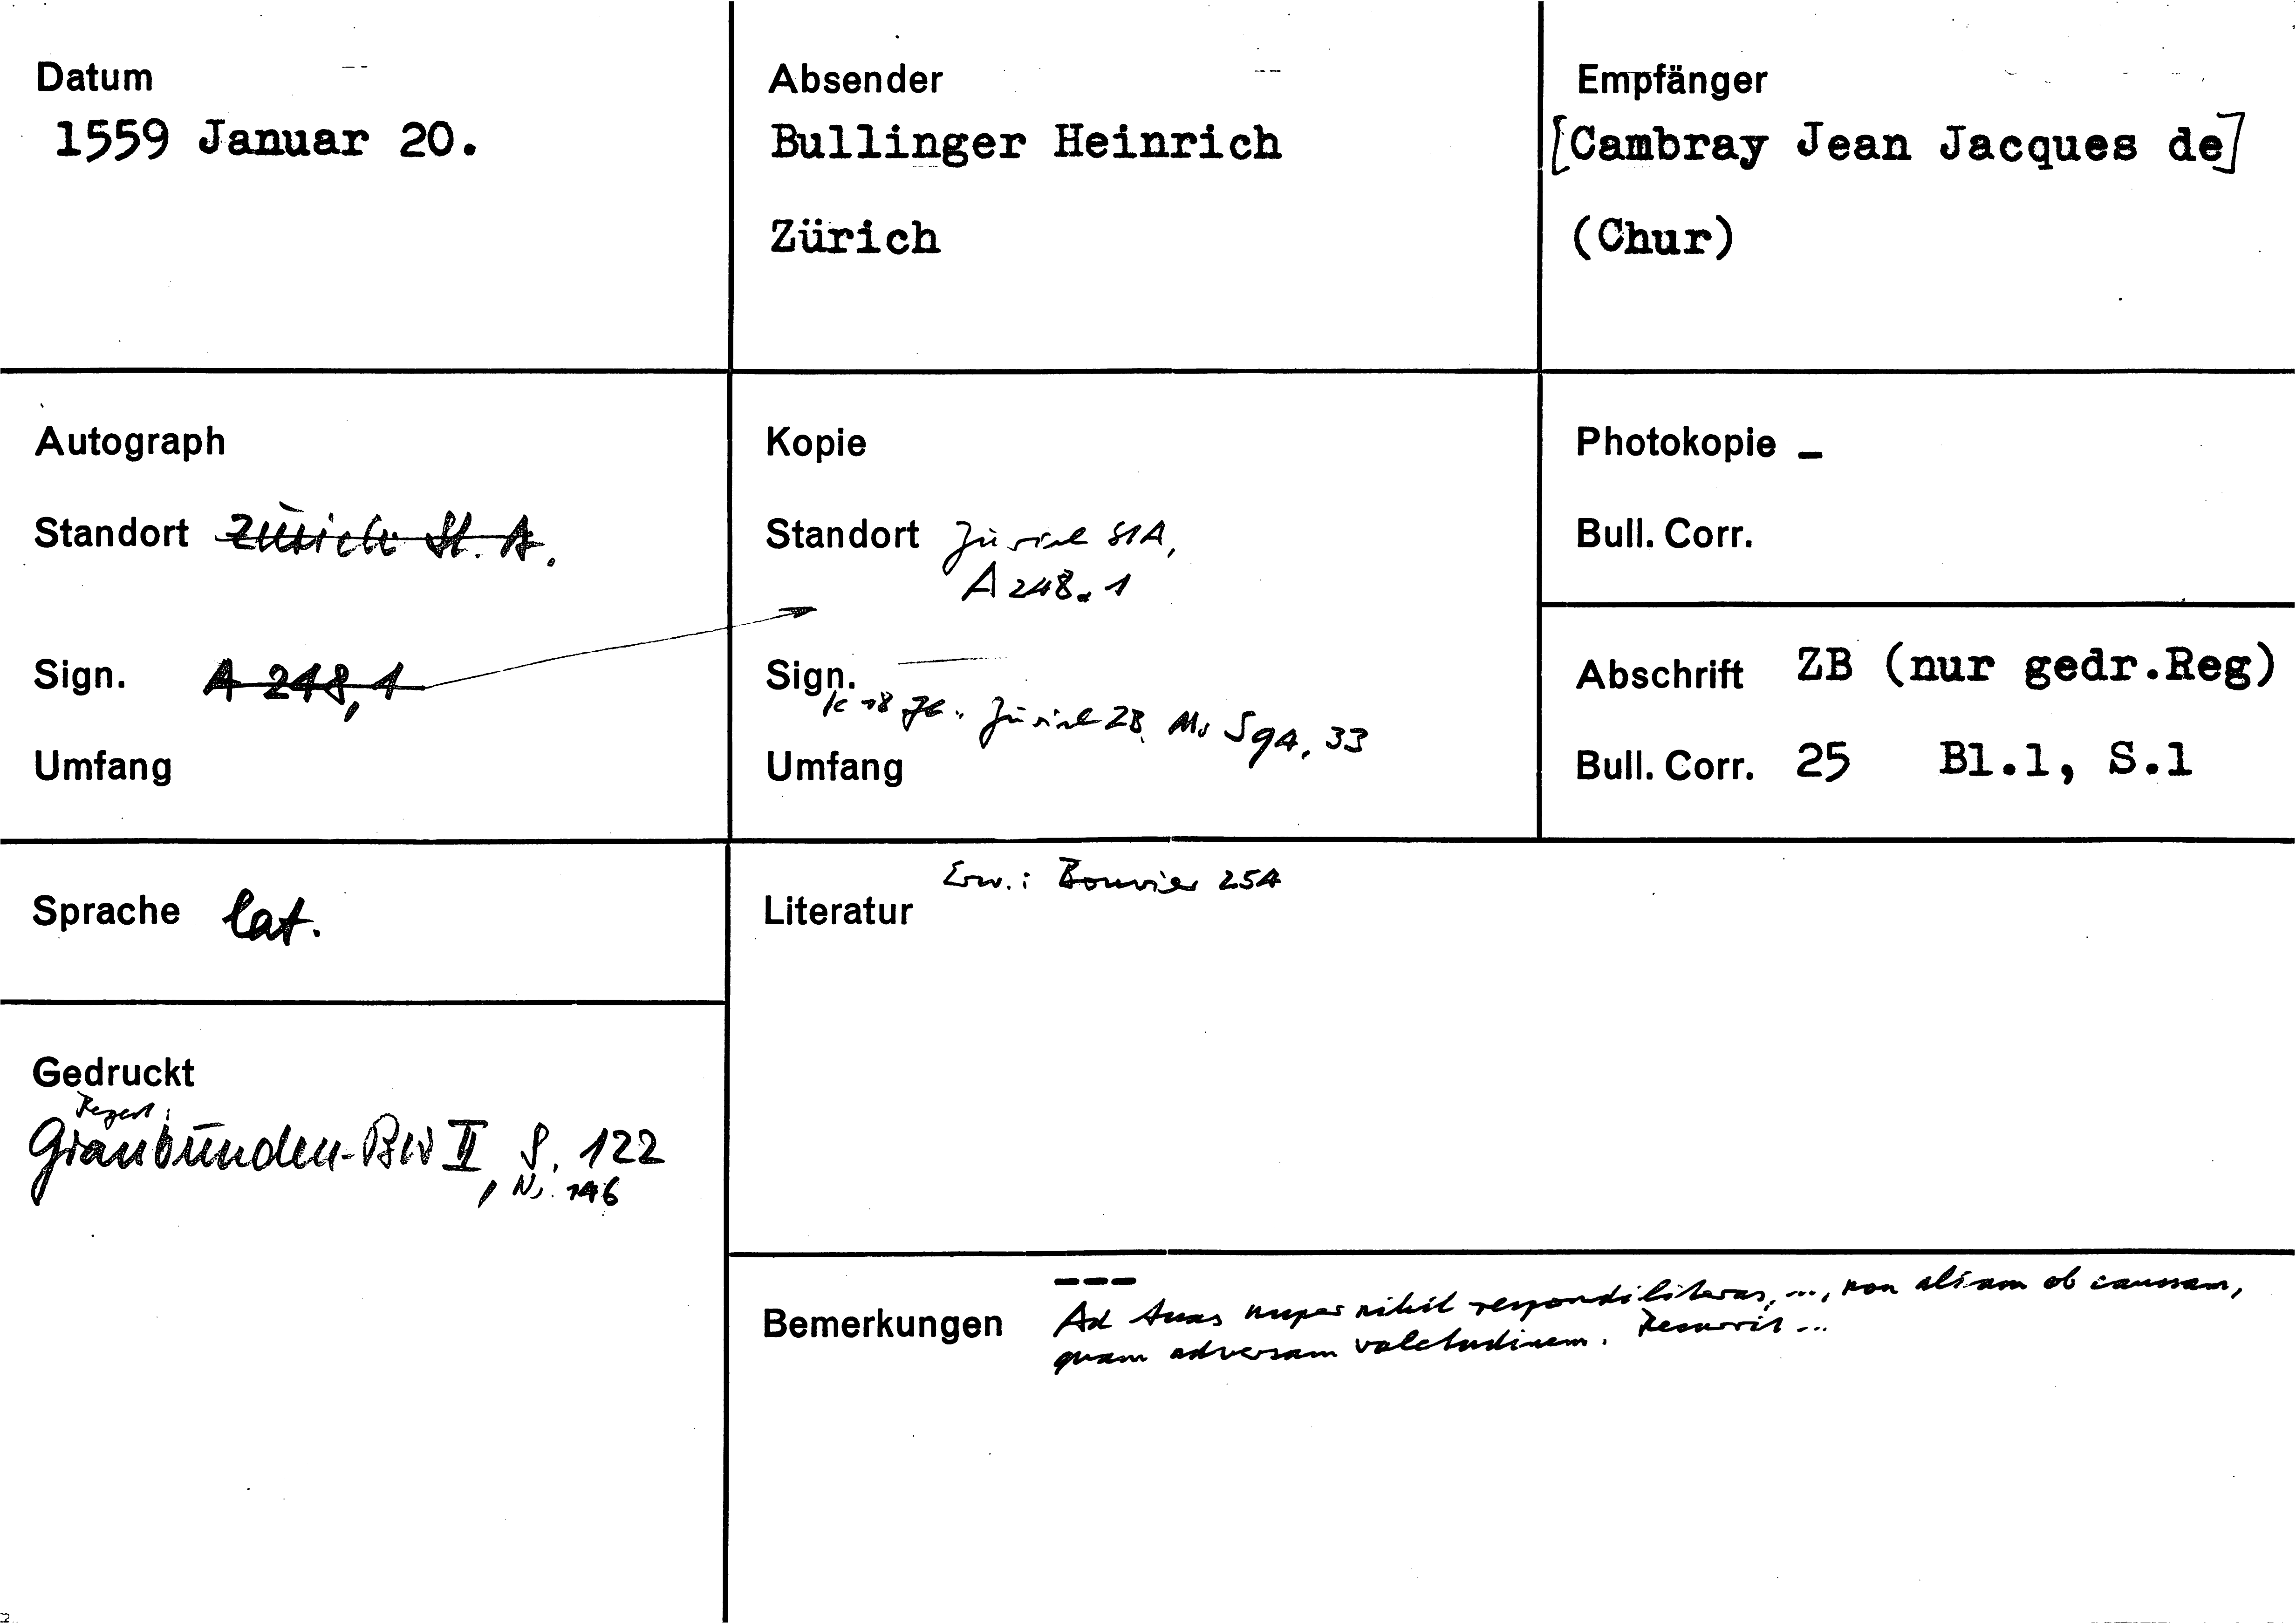 Datum
1559 Januar 20.
Absender
Bullinger Heinrich
Zürich
Empfänger
[Cambray Jean Jacques de]
(Chur)
Autograph
Standort Zürich St. A.
Sign. A 248,1
Umfang
Kopie
Standort Zürich StA,
A 248.1
Sign.
k 18 Jh. Zürich ZB, Ms S 94, 33
Umfang
Photokopie –
Bull. Corr.
Abschrift ZB (nur gedr.Reg)
Bull. Corr. 25 Bl.1, S.1
Sprache lat.
Gedruckt
Regest:
Graubünden-BW II, S. 122
Nr. 146
Erw.: Bouvier 254
Literatur
---
Bemerkungen Ad tuas nuper nihil respondi literas, ..., non aliam ob caussam,
quam adversam valetudinem.